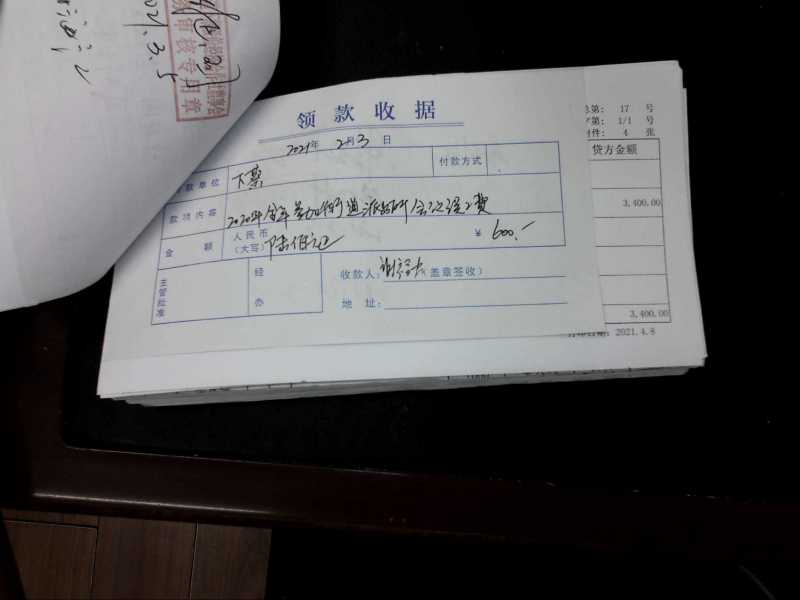 2021.3.5
审核专用章
领款收据
2021年 2月3日
款单位 下蔡 付款方式
款项内容 2020年全年参加街道派出所会议误工费
金额 人民币(大写) 陆佰元 ¥ 600.-
主管批准 经办 收款人: (盖章签收)
地址:
总第: 17 号
第: 1/1 号
附件: 4 张
贷方金额
3,400.00
3,400.00
打印日期: 2021.4.8